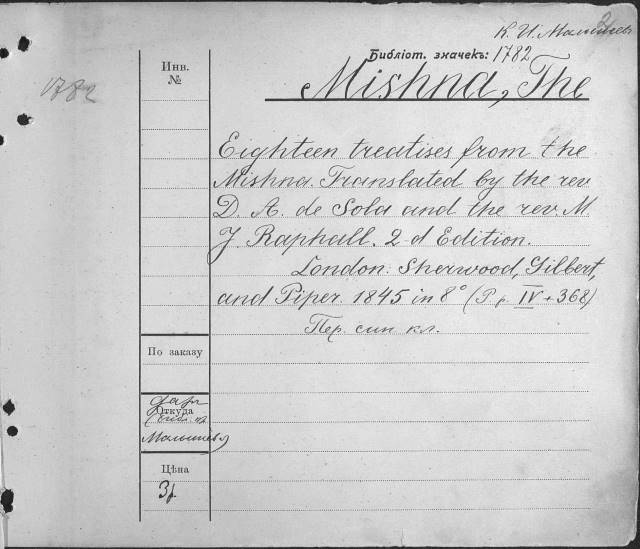 К. И. Малышев
Библіот. значекъ: 1782
1782
Инв.
№
Mishna, The
Eighteen treatises from the
Mishna. Translated by the rev
D. A. de Sola and the rev. M.
J. Raphall. 2 d Edition.
London: Sherwood, Gilbert,
and Piper. 1845 in 8° (P. p. IV + 368)
Пер. син кл.
По заказу
даръ
Откуда
(библ.
Малышева)
Цѣна
3р